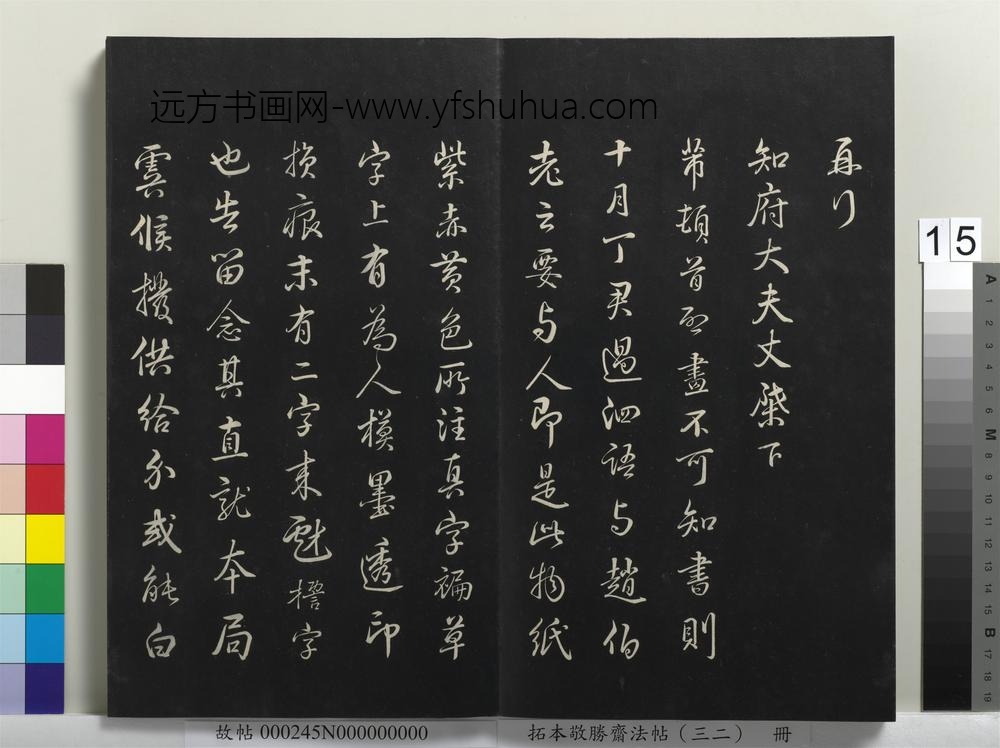 远方书画网-www.yfshuhua.com
再行
知府大夫丈槩下
芾頓首 畫不可知書則
十月丁君過泗語与趙伯
老云要与人即是此物紙
紫赤黄色所注真字褊草
字上有為人模墨透印
損痕末有二字来戲 字
也告留念其直就本局
雲候撥供給分或能白
15
A 1 2 3 4 5 M 8 9 10 11 12 13 14 15 B 17 18 19
故帖 000245N000000000
拓本敬勝齋法帖（三二） 冊